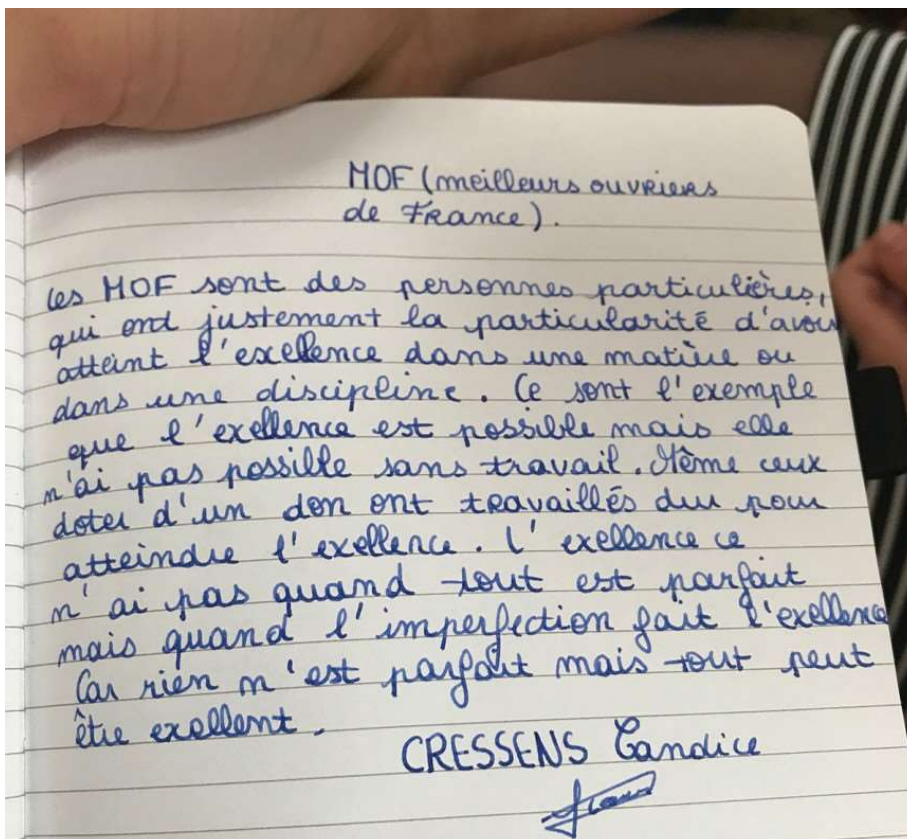 MOF (meilleurs ouvriers
de France).
Les MOF sont des personnes particulières,
qui ond justement la particularité d'avoir
atteint l'exellence dans une matière ou
dans une discipline. Ce sont l'exemple
que l'exellence est possible mais elle
n'ai pas possible sans travail. Même ceux
doter d'un don ont travaillés dur pour
atteindre l'exellence. L'exellence ce
n'ai pas quand tout est parfait
mais quand l'imperfection fait l'exellence
Car rien n'est parfait mais tout peut
être exellent.
CRESSENS Candice